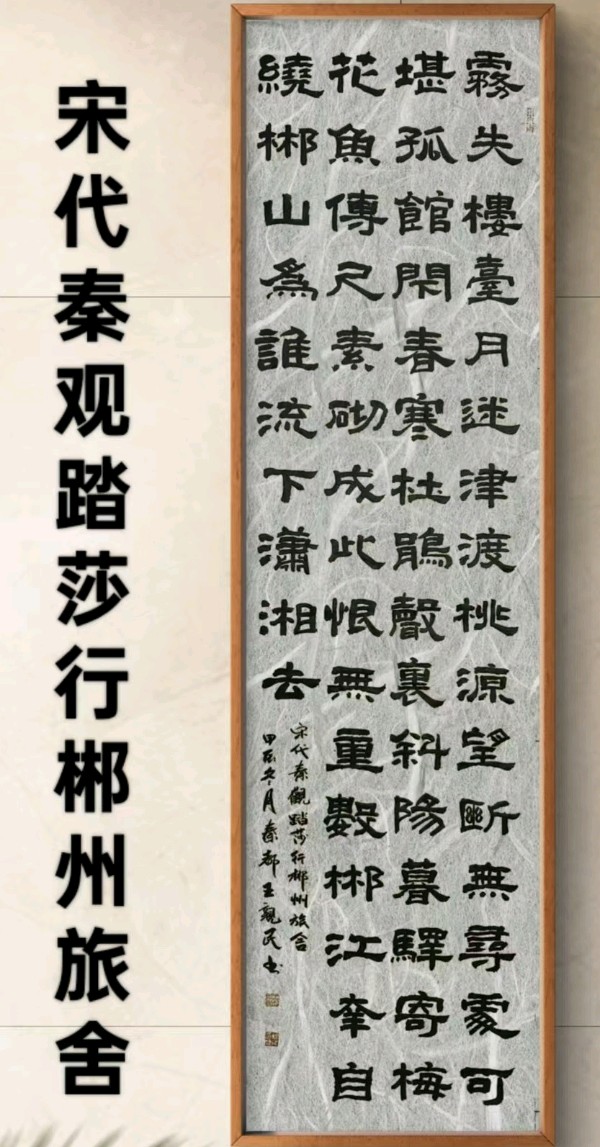 宋代秦观踏莎行郴州旅舍
霧失樓臺月迷津渡桃源望斷無尋處可
堪孤館閇春寒杜鵑聲裏斜陽暮驛寄梅
花魚傳尺素砌成此恨無重數郴江幸自
繞郴山為誰流下瀟湘去
宋代秦觀踏莎行郴州旅舍
甲辰冬月秦都王親民书